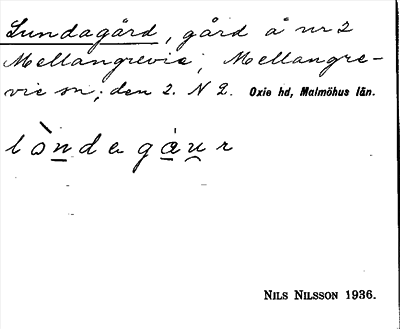 Lundagård, gård å nr 2
Mellangrevie, Mellangre-
vie sn; den 2. N 2. Oxie hd, Malmöhus län.
lòndagàur
NILS NILSSON 1936.